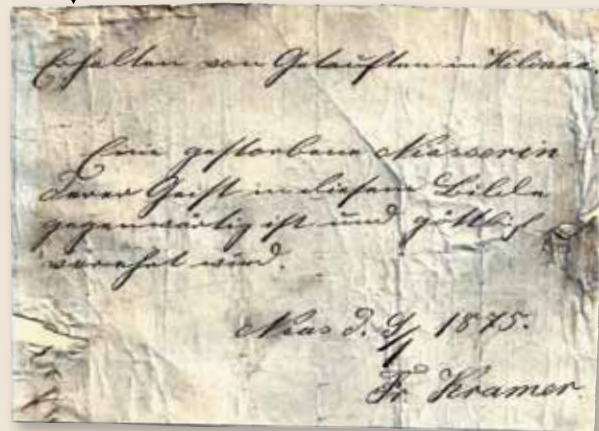 Erhalten von Getauften in Hilinaa.
Eine gestorbene Niasserin
derer Geist in diesem Bilde
gegenwärtig ist und göttlich
verehrt wird.
Nias d. 9/1 1875.
Fr. Kramer.